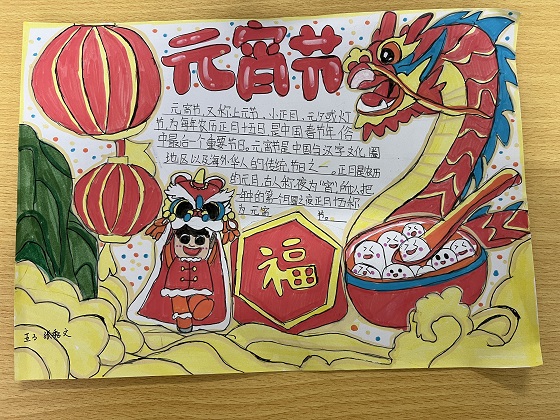 元宵节
元宵节,又称上元节、小正月、元夕或灯
节,为每年农历正月十五日,是中国春节年俗
中最后一个重要节日。元宵节是中国与汉字文化圈
地区以及海外华人的传统节日之一。正月是农历
的元月,古人称"夜"为"宵",所以把
一年中的第一个月圆之夜正月十五称
为元宵节。
福